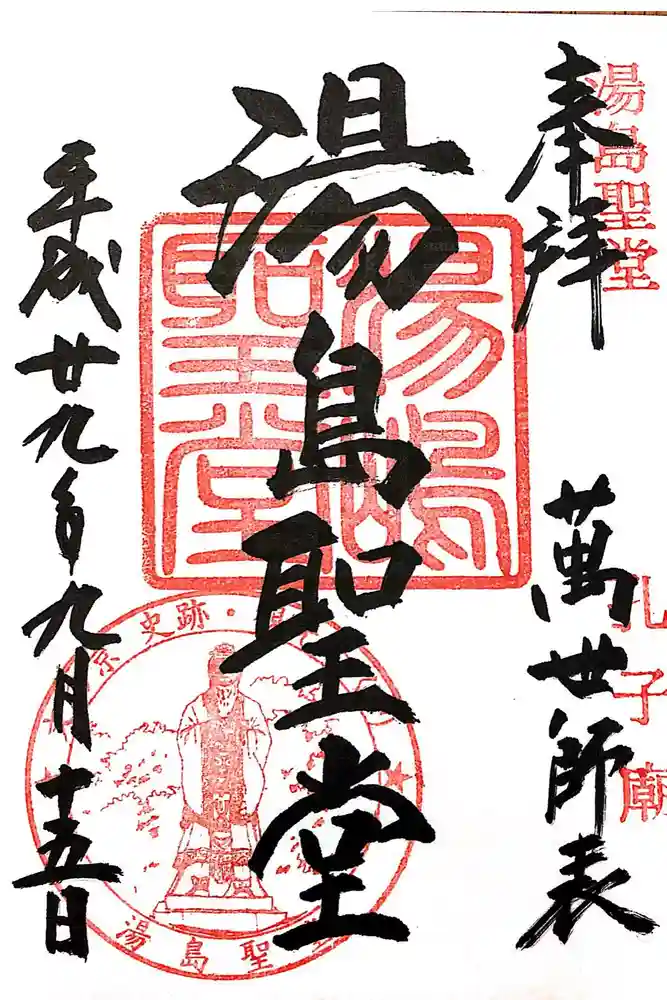 奉拝
湯島聖堂
萬世師表
孔子廟
湯島聖堂
湯島聖堂
平成廿九年九月十五日
史跡・
湯島聖